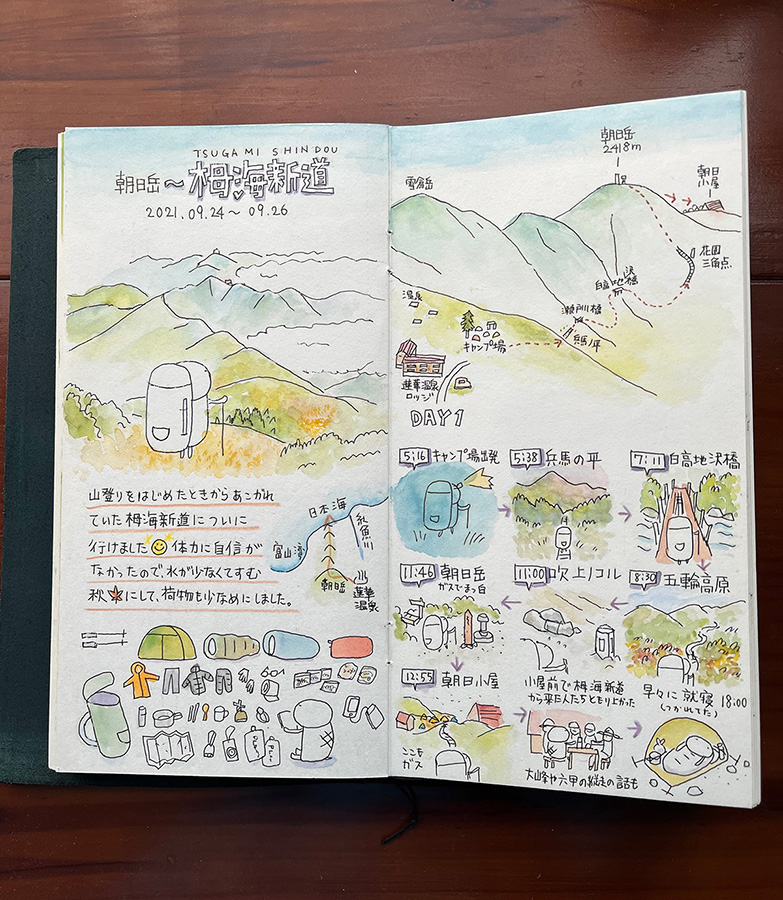 TSUGAMI SHINDOU
朝日岳〜栂海新道
2021.09.24〜09.26
山登りをはじめたときからあこがれ
ていた栂海新道についに
行けました 体力に自信が
なかったので、水が少なくてすむ
秋にして、荷物も少なめにしました。
日本海
糸魚川
富山湾
朝日岳
蓮華
温泉
朝日岳
2418m
雪倉岳
朝日
小屋
花園
三角点
白高地沢
橋
瀬戸川橋
兵馬ノ平
温泉
キャンプ場
蓮華温泉
ロッジ
DAY1
5:16 キャンプ場出発
5:38 兵馬の平
7:11 白高地沢橋
8:30 五輪高原
11:00 吹上ノコル
11:46 朝日岳
ガスでまっ白
12:55 朝日小屋
ここも
ガス
小屋前で栂海新道
から来た人たちともり上がった
大山峰や六甲の縦走の話も
早々に就寝 18:00
(つかれてた)